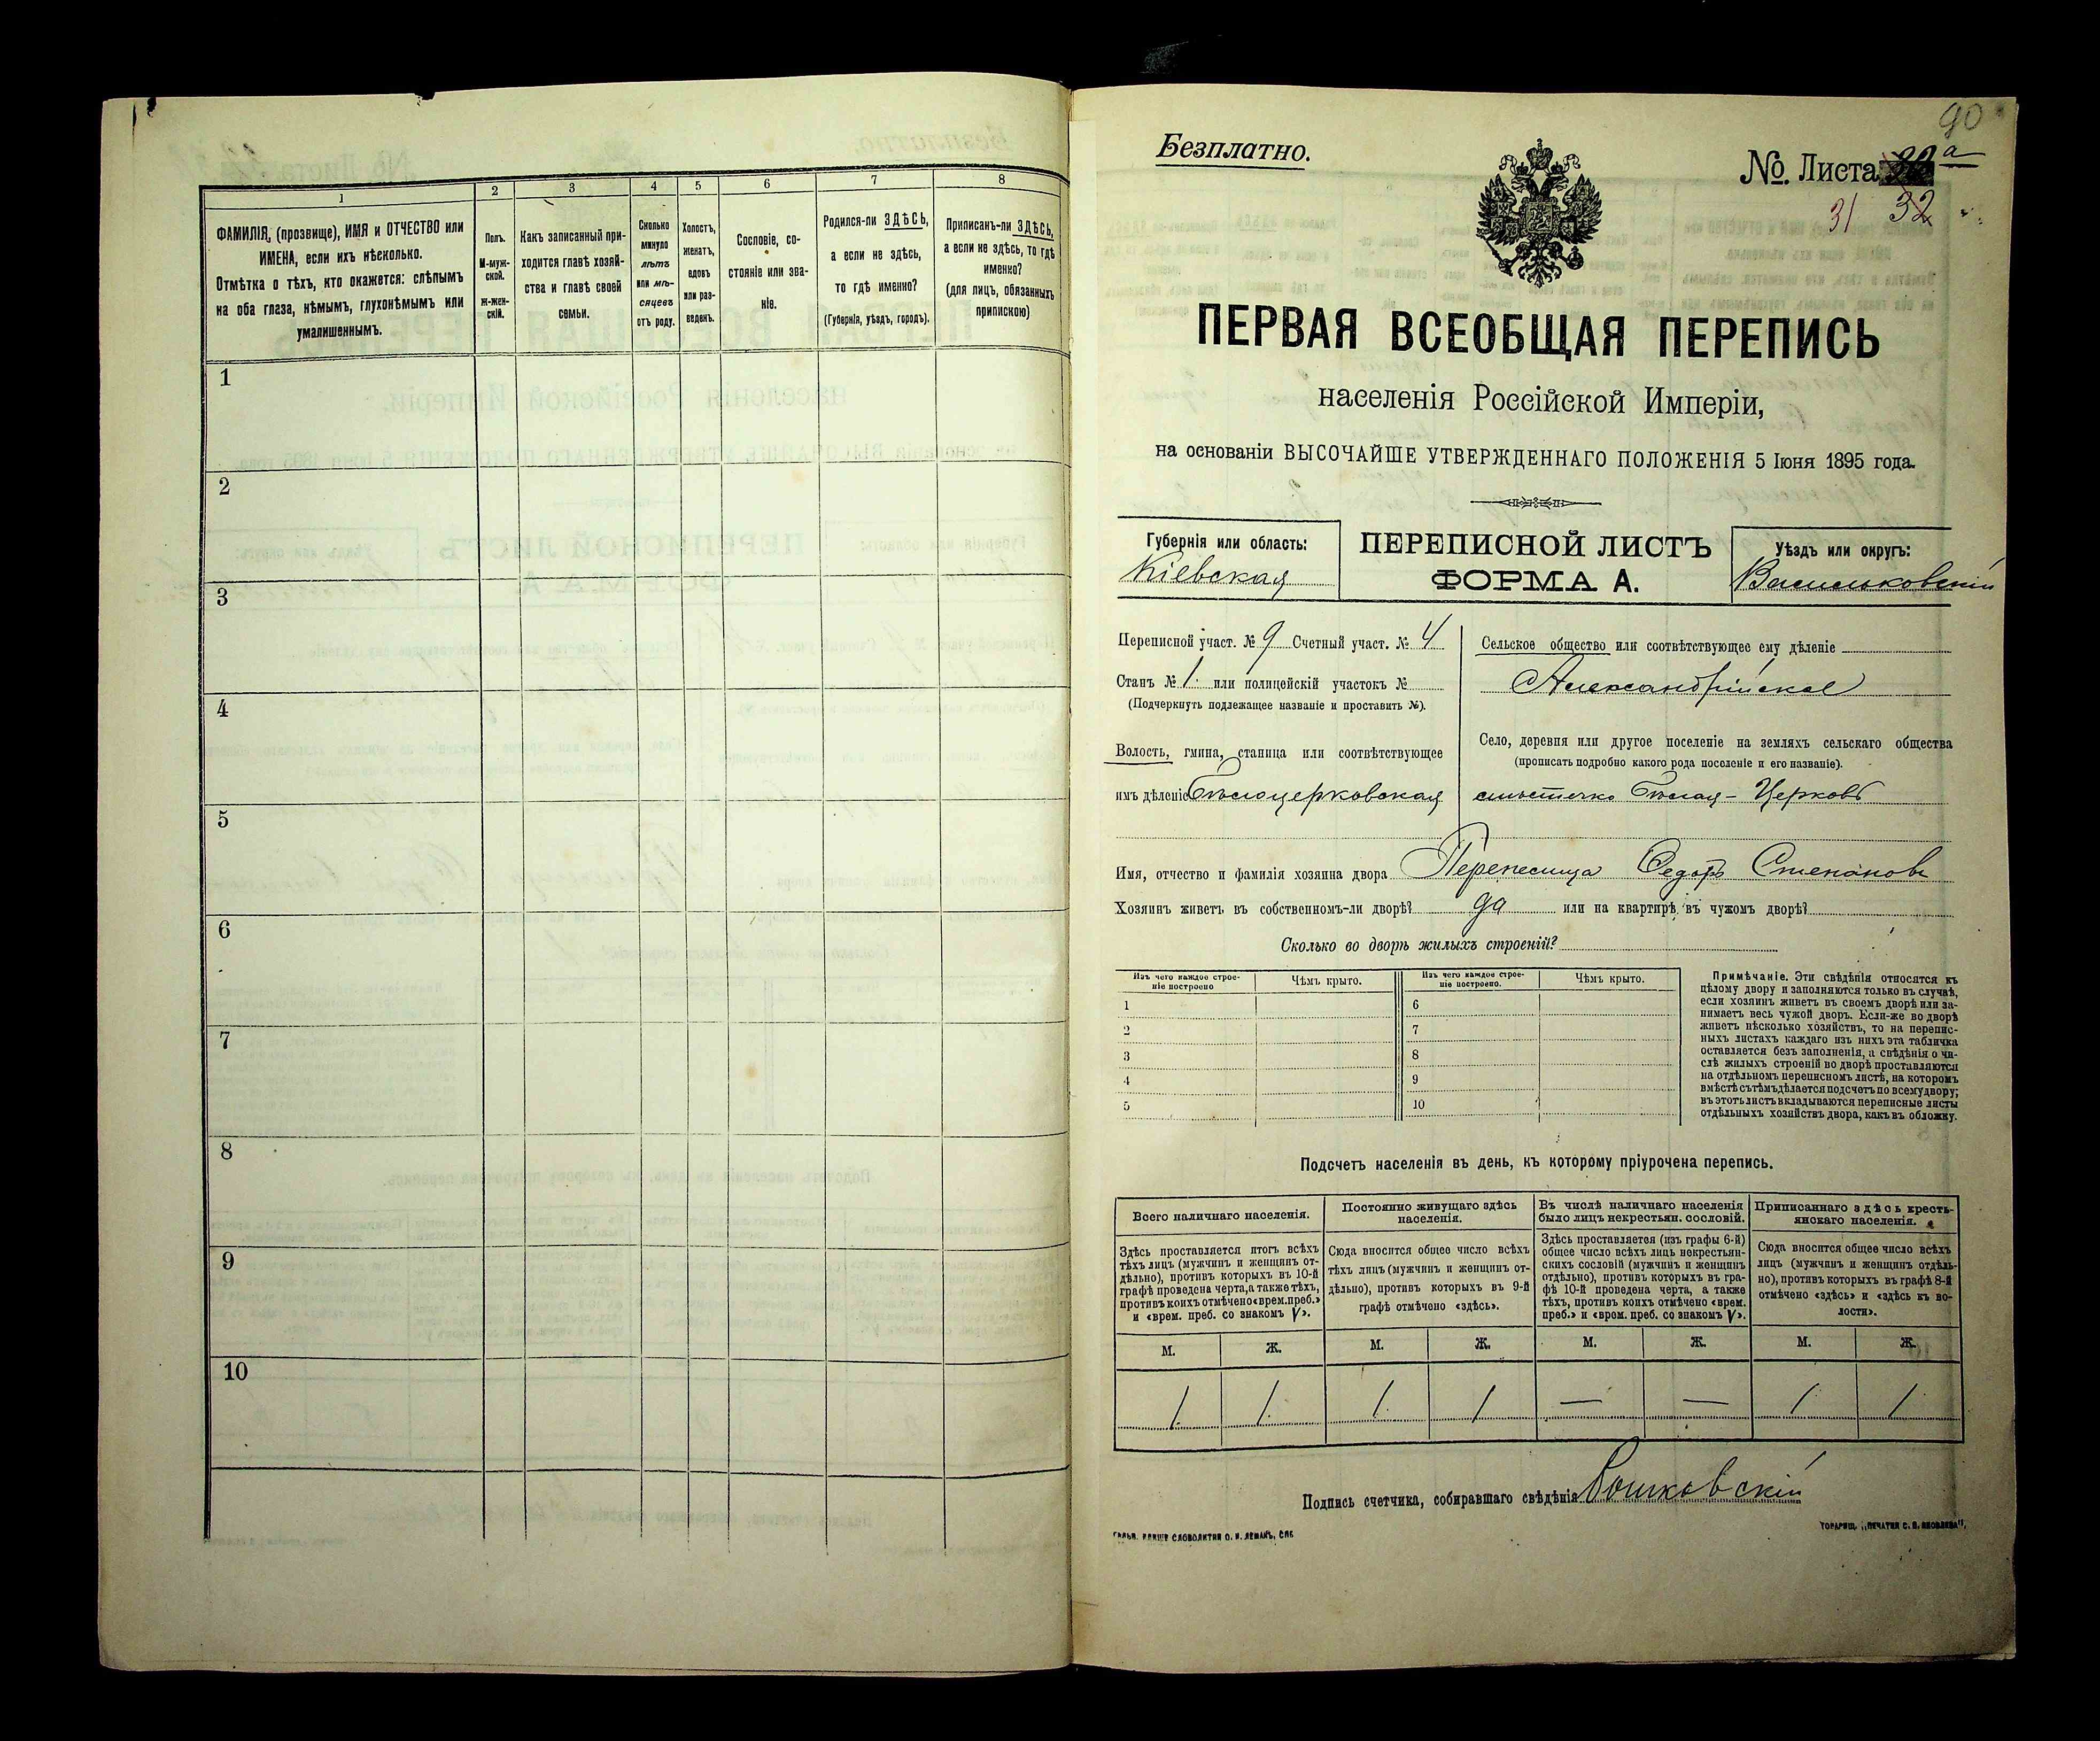 1
2
3
4
5
6
7
8
ФАМИЛІЯ, (прозвище), ИМЯ и ОТЧЕСТВО или
ИМЕНА, если ихъ нѣсколько.
Отмѣтка о тѣхъ, кто окажется: слѣпымъ
на оба глаза, нѣмымъ, глухонѣмымъ или
умалишеннымъ.
Полъ.
М-муж-
ской.
Ж-жен-
скій.
Какъ записанный при-
ходится главѣ хозяй-
ства и главѣ своей
семьи.
Сколько
минуло
лѣтъ
или мѣ-
сяцевъ
отъ роду.
Холостъ,
женатъ,
вдовъ
или раз-
веденъ.
Сословіе, со-
стояніе или зва-
ніе.
Родился-ли ЗДѢСЬ,
а если не здѣсь,
то гдѣ именно?
(Губернія, уѣздъ, городъ).
Приписанъ-ли ЗДѢСЬ,
а если не здѣсь, то гдѣ
именно?
(для лицъ, обязанныхъ
припискою)
1
2
3
4
5
6
7
8
9
10
90
Безплатно.
№. Листа а
31 32
ПЕРВАЯ ВСЕОБЩАЯ ПЕРЕПИСЬ
населенія Россійской Имперіи,
на основаніи ВЫСОЧАЙШЕ УТВЕРЖДЕННАГО ПОЛОЖЕНІЯ 5 Іюня 1895 года.
Губернія или область:
Кіевская
ПЕРЕПИСНОЙ ЛИСТЪ
ФОРМА А.
Уѣздъ или округъ:
Васильковскій
Переписной участ. № 9 Счетный участ. № 4
Станъ № 1. или полицейскій участокъ №
(Подчеркнуть подлежащее названіе и проставить №).
Волость, гмина, станица или соотвѣтствующее
имъ дѣленіе Бѣлоцерковская
Сельское общество или соотвѣтствующее ему дѣленіе
Александрійское
Село, деревня или другое поселеніе на земляхъ сельскаго общества
(прописать подробно какого рода поселеніе и его названіе).
мѣстечко Бѣлая-Церковь
Имя, отчество и фамилія хозяина двора Перепелица Федоръ Степановъ
Хозяинъ живетъ въ собственномъ-ли дворѣ? да или на квартирѣ въ чужомъ дворѣ?
Сколько во дворѣ жилыхъ строеній?
Изъ чего каждое строе-
ніе построено
Чѣмъ крыто.
Изъ чего каждое строе-
ніе построено.
Чѣмъ крыто.
1
2
3
4
5
6
7
8
9
10
Примѣчаніе. Эти свѣдѣнія относятся къ
цѣлому двору и заполняются только въ случаѣ,
если хозяинъ живетъ въ своемъ дворѣ или за-
нимаетъ весь чужой дворъ. Если-же во дворѣ
живетъ нѣсколько хозяйствъ, то на перепис-
ныхъ листахъ каждаго изъ нихъ эта табличка
оставляется безъ заполненія, а свѣдѣнія о чи-
слѣ жилыхъ строеній во дворѣ проставляются
на отдѣльномъ переписномъ листѣ, на которомъ
вмѣстѣ съ тѣмъ дѣлается подсчетъ по всему двору;
въ этотъ листъ вкладываются переписные листы
отдѣльныхъ хозяйствъ двора, какъ въ обложку.
Подсчетъ населенія въ день, къ которому пріурочена перепись.
Всего наличнаго населенія.
Постоянно живущаго здѣсь
населенія.
Въ числѣ наличнаго населенія
было лицъ некрестьян. сословій.
Приписаннаго здѣсь кресть-
янскаго населенія.
Здѣсь проставляется итогъ всѣхъ
тѣхъ лицъ (мужчинъ и женщинъ от-
дѣльно), противъ которыхъ въ 10-й
графѣ проведена черта, а также тѣхъ,
противъ коихъ отмѣчено «врем. преб.»
и «врем. преб. со знакомъ V».
Сюда вносится общее число всѣхъ
тѣхъ лицъ (мужчинъ и женщинъ от-
дѣльно), противъ которыхъ въ 9-й
графѣ отмѣчено «здѣсь».
Здѣсь проставляется (изъ графы 6-й)
общее число всѣхъ лицъ некрестьян-
скихъ сословій (мужчинъ и женщинъ
отдѣльно), противъ которыхъ въ гра-
фѣ 10-й проведена черта, а также
тѣхъ, противъ коихъ отмѣчено «врем.
преб.» и «врем. преб. со знакомъ V».
Сюда вносится общее число всѣхъ
лицъ (мужчинъ и женщинъ отдѣль-
но), противъ которыхъ въ графѣ 8-й
отмѣчено «здѣсь» и «здѣсь къ во-
лости».
М. Ж. М. Ж. М. Ж. М. Ж.
1. 1. 1. 1 — — 1 1
Подпись счетчика, собиравшаго свѣдѣнія
СЛОВОЛИТНИ О. И. ЛЕМАНЪ, СПБ
ТОВАРИЩ. „ПЕЧАТНЯ С. П. ЯКОВЛЕВА“,